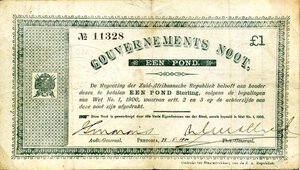 № 11328
GOUVERNEMENTS NOOT.
£1
EEN POND.
De Regeering der Zuid-Afrikaansche Republiek belooft aan houder
dezes te betalen EEN POND Sterling, volgens de bepalingen
van Wet No. 1, 1900, voorzien artt. 2 en 3 op de achterzijde aan
deze noot zijn afgedrukt.
Deze Noot is gewaarborgd door alle Vaste Eigendommen der Staat, zooals bepaald in Wet No. 1, 1900.
Audt.-Generaal.
Pretoria
Thes.-Generaal.
Gedrukt ter Staatsdrukkerij van de Z. A. Republiek.